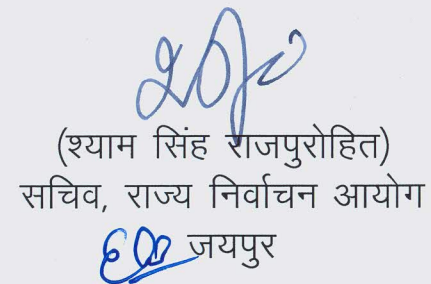 (श्याम सिंह राजपुरोहित)
सचिव, राज्य निर्वाचन आयोग
जयपुर